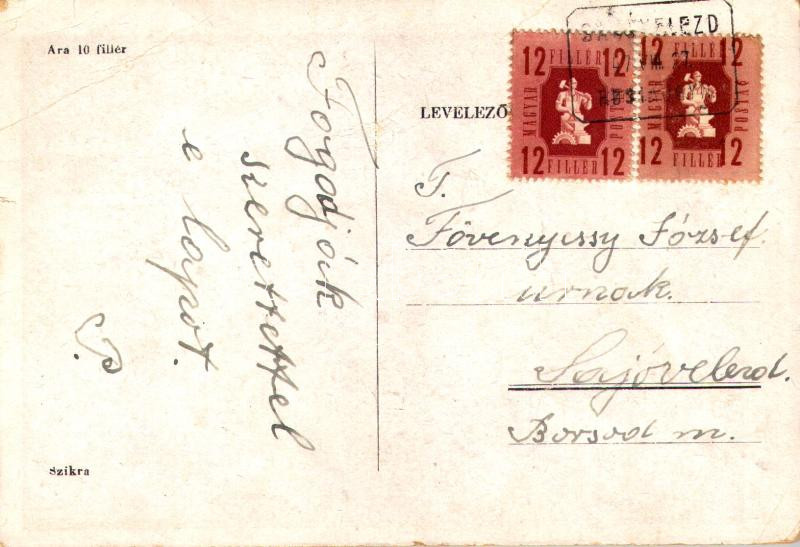 Ara 10 fillér
Fogadják
szeretettel
e lapot.
P.
Szikra
LEVELEZŐ
12 FILLÉR 12
MAGYAR POSTA
12 FILLÉR 12
12 FILLÉR 12
MAGYAR POSTA
12 FILLÉR 12
VELEZD
T.
Fövenyessy József.
urnak.
Sajóvelezd.
Borsod m.